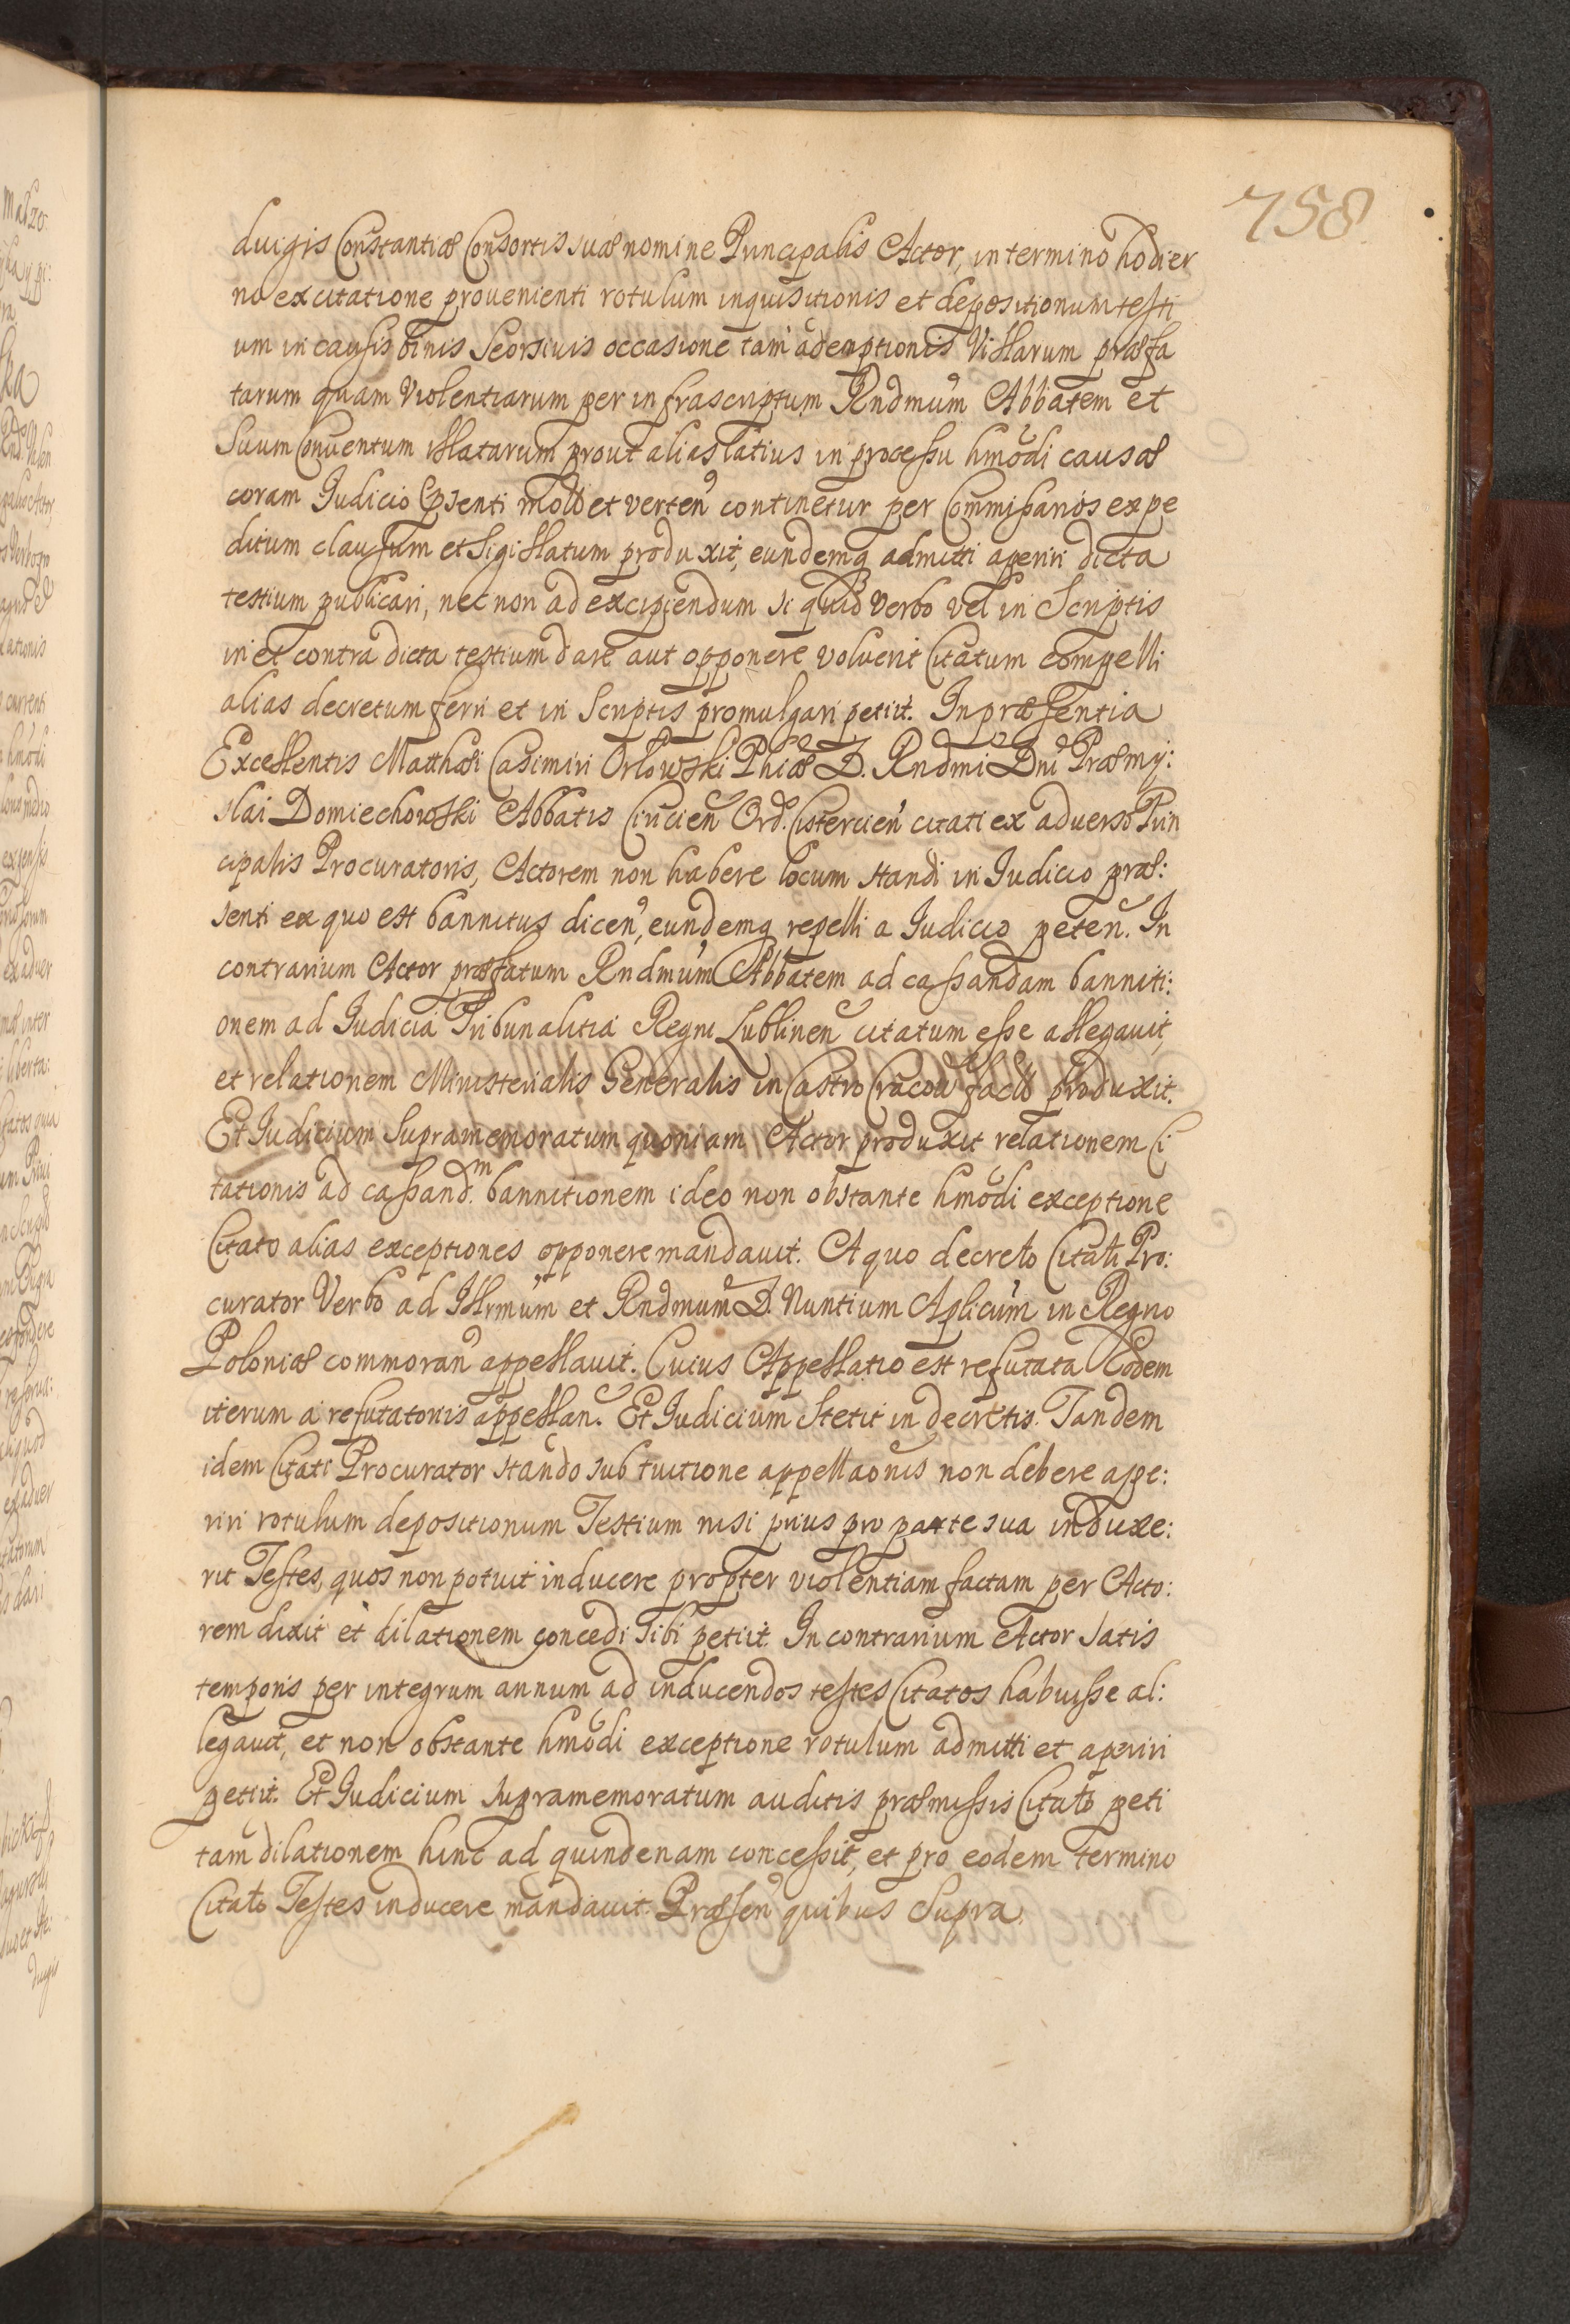 758
duigis Constantiæ Consortis suæ nomine Principalis Actor, in termino hodier
no ex citatione prouenienti rotulum inquisitionis et depositionum testi
um in causis binis Seorsiuis occasione tam ademptionis Villarum præfa
tarum quam Violentiarum per infrascriptum Rndmum Abbatem et
Suum Conuentum illatarum prout alias latius in processu hmodi causæ
coram Judicio pnsenti mota et verten continetur per Commissarios expe
ditum clausum et Sigillatum produxit, eundemq admitti aperiri dicta
testium publicari, nec non ad excipiendum si quid verbo vel in Scriptis
in et contra dicta testium dare aut opponere voluerit Citatum compelli
alias decretum ferri et in Scriptis promulgari petiit. In præsentia
Excellentis Matthæi Casimiri Orłowski Phiæ D. Rndmi Dni Præmy:
slai Domiechowski Abbatis Ciricien Ord. Cistercien citati ex aduerso Prin
cipalis Procuratoris, Actorem non habere locum standi in Judicio præ:
senti ex quo est bannitus dicen, eundemq repelli a Judicio peten. In
contrarium Actor præfatum Rndmum Abbatem ad cassandam banniti:
onem ad Judicia Tribunalitia Regni Lublinen citatum esse allegauit,
et relationem Ministerialis Generalis in Castro Cracou facta produxit.
Et Judicium Supramemoratum quoniam Actor produxit relationem Ci
tationis ad cassand.m bannitionem ideo non obstante hmodi exceptione
Citato alias exceptiones opponere mandauit. A quo decreto Citati Pro:
curator Verbo ad Illrmum et Rndmum D. Nuntium Aplicum in Regno
Poloniæ commoran appellauit. Cuius Appellatio est refutata Eodem
iterum a refutatoriis appellan. Et Judicium stetit in decretis. Tandem
idem Citati Procurator stando sub tuitione appellaonis non debere ape:
riri rotulum depositionum Testium nisi prius pro parte sua induxe:
rit Testes, quos non potuit inducere propter violentiam factam per Acto:
rem dixit et dilationem concedi sibi petiit. In contrarium Actor satis
temporis per integrum annum ad inducendos testes Citatos habuisse al:
legauit, et non obstante hmodi exceptione rotulum admitti et aperiri
petiit. Et Judicium supramemoratum auditis præmissis Citato peti
tam dilationem hinc ad quindenam concessit, et pro eodem termino
Citato Testes inducere mandauit. Præsen quibus Supra.